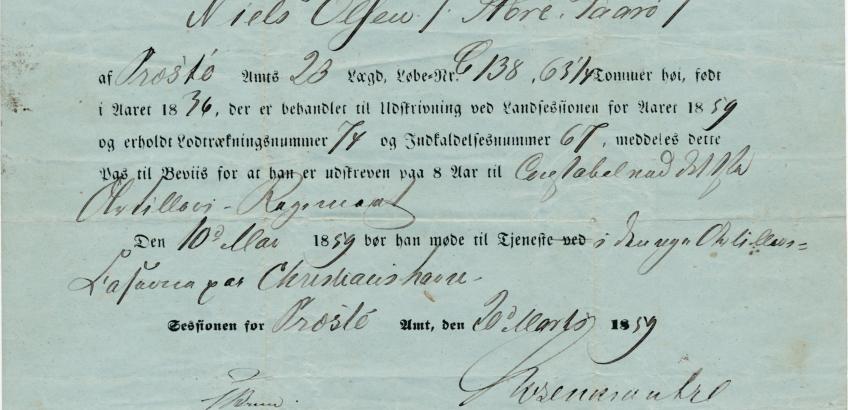 Niels Olsen f. Store Taarø
af Præstö Amts 23 Lægd, Løbe-Nr. C 138, 63 1/4 Tommer høi, født
i Aaret 1836, der er behandlet til Udskrivning ved Landsessionen for Aaret 1859
og erholdt Lodtrækningsnummer 74 og Indkaldelsesnummer 67, meddeles dette
Pas til Beviis for at han er udskreven paa 8 Aar til Constabel ved det
Artilleri-Regiment
Den 10d Mai 1859 bør han møde til Tjeneste ved i den nye Artilleri=
Caserne paa Christianshavn
Sessionen for Præstö Amt, den 20d Marts 1859